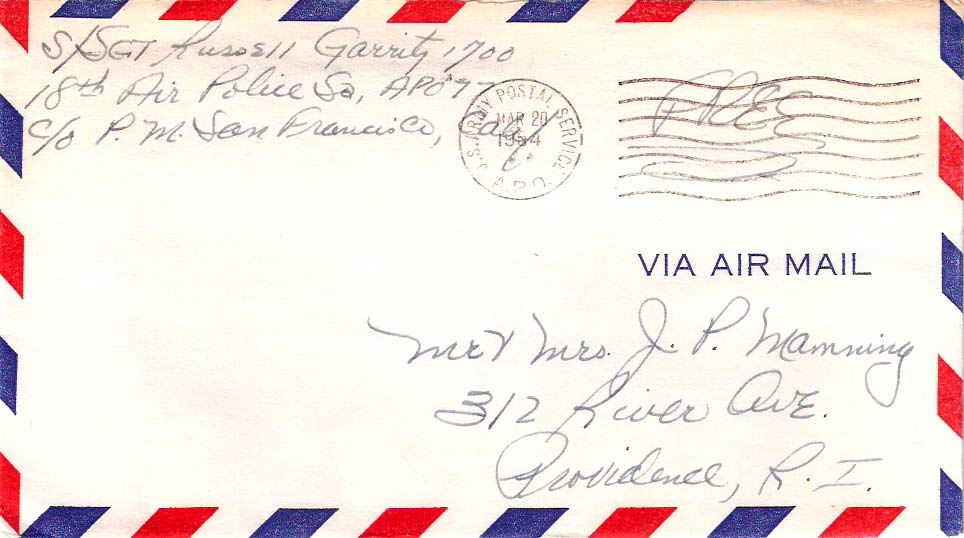 S/SGT Russell Garrity 1700
18th Air Police Sq, APO 77
c/o P. M. San Francisco, Calif
U.S. ARMY POSTAL SERVICE
MAR 20
1954
A.P.O.
FREE
VIA AIR MAIL
Mr & Mrs. J. P. Mamning
312 River Ave.
Providence, R. I.